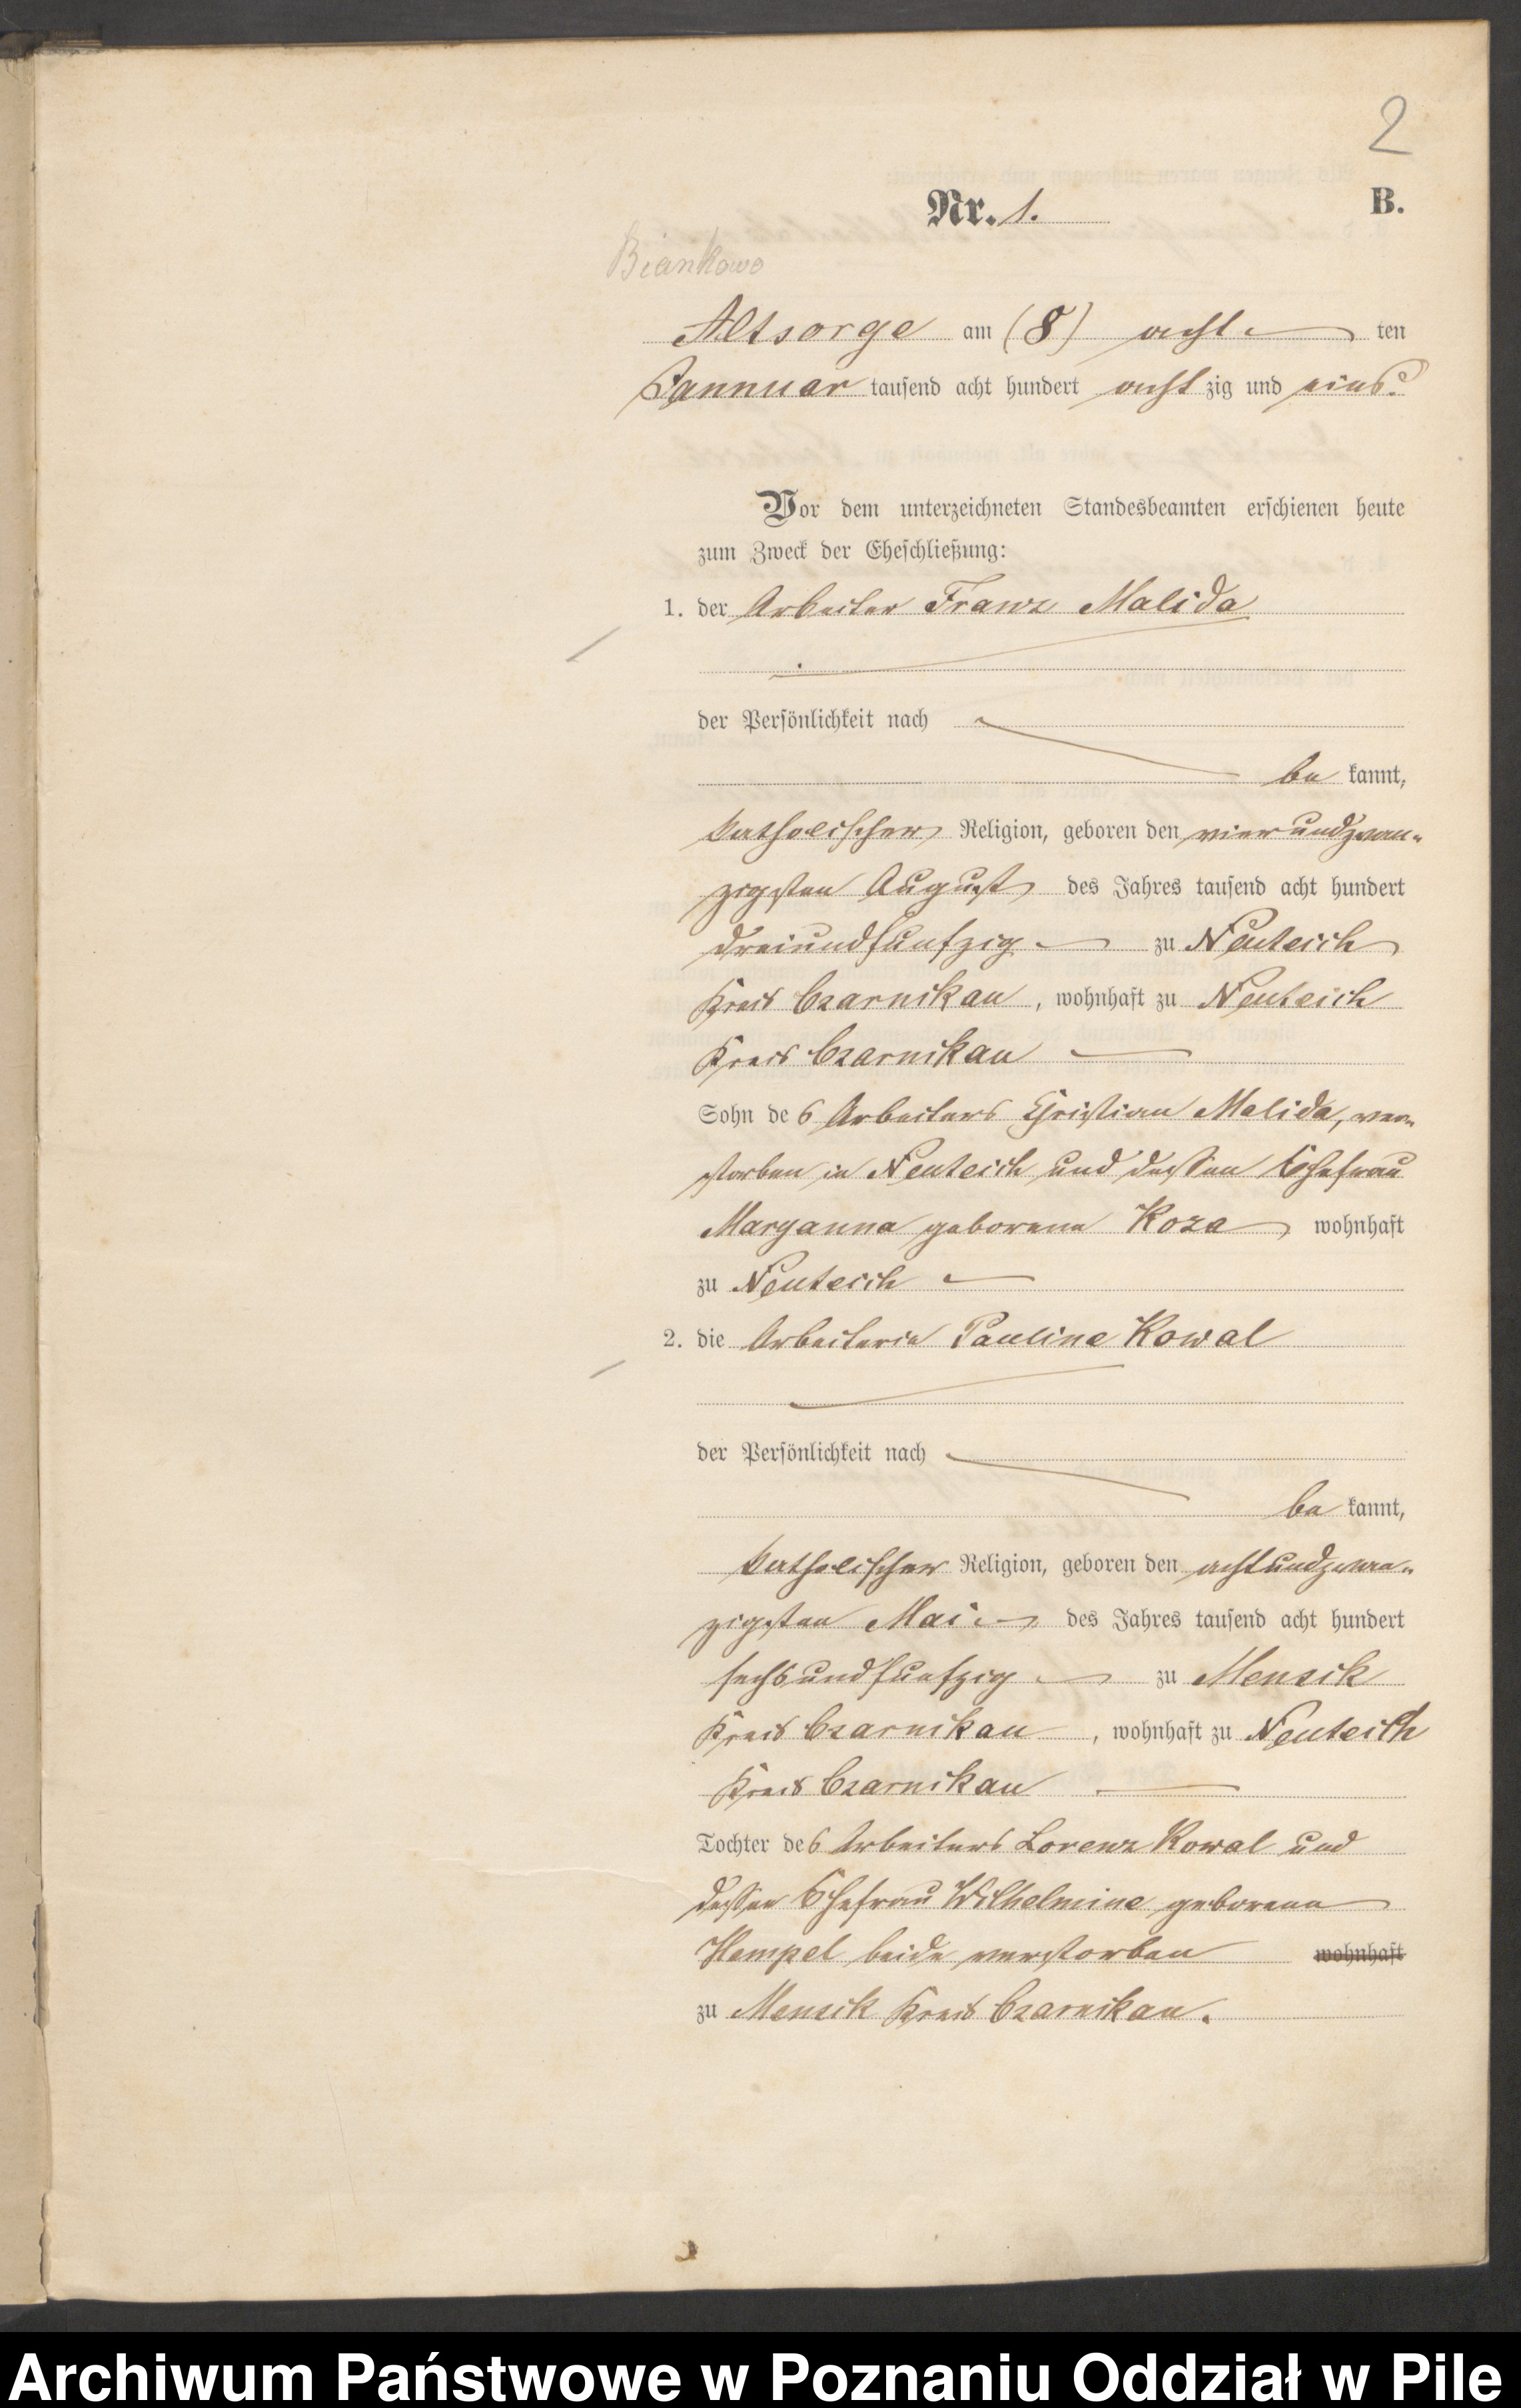 2
Nr. 1. B.
Biankowo
Altsorge am (8) acht ten
Jannuar tausend acht hundert acht zig und eins.
Vor dem unterzeichneten Standesbeamten erschienen heute
zum Zweck der Eheschließung:
1. der Arbeiter Franz Malida
der Persönlichkeit nach
be kannt,
katholischer Religion, geboren den vierundzwan-
zigsten August des Jahres tausend acht hundert
dreiundfünfzig zu Neuteich
Kreis Czarnikau, wohnhaft zu Neuteich
Kreis Czarnikau
Sohn des Arbeiters Christian Malida, ver-
storben in Neuteich und dessen Ehefrau
Maryanna geborene Koza wohnhaft
zu Neuteich
2. die Arbeiterin Pauline Kowal
der Persönlichkeit nach
be kannt,
katholischer Religion, geboren den achtundzwan-
zigsten Mai des Jahres tausend acht hundert
sechsundfünfzig zu Mensik
Kreis Czarnikau, wohnhaft zu Neuteich
Kreis Czarnikau
Tochter des Arbeiters Lorenz Kowal und
dessen Ehefrau Wilhelmine geborene
Hempel beide verstorben wohnhaft
zu Mensik Kreis Czarnikau.
Archiwum Państwowe w Poznaniu Oddział w Pile